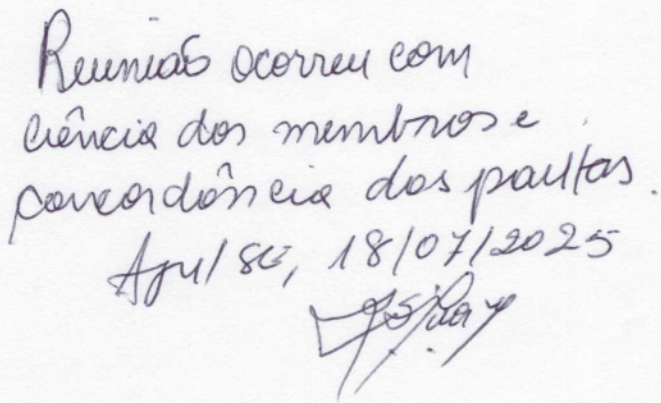 Reunião ocorreu com
ciência dos membros e
concordância das pautas.
Aju/SE, 18/07/2025